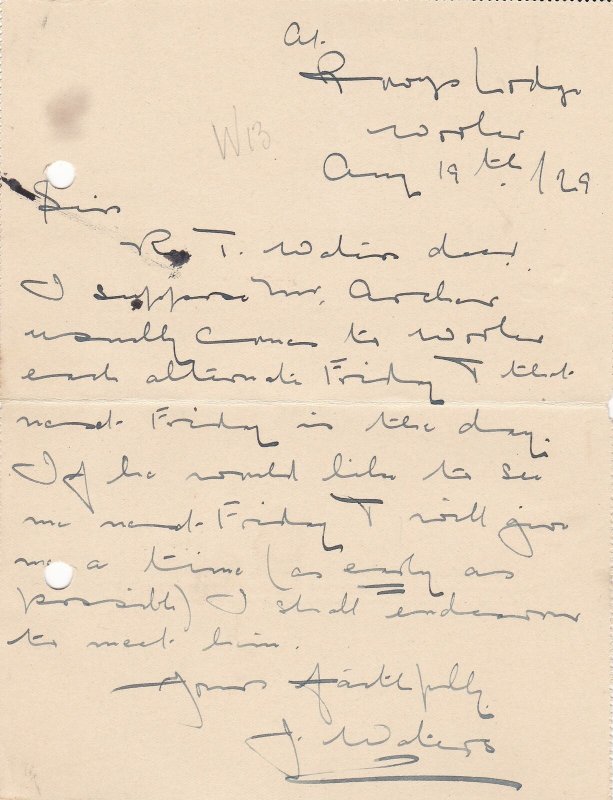 At.
Lodge
Wooler
W13
Aug 19th/29
Sirs
R. T. Waters decd.
I suppose Mr. Archer
usually comes to Wooler
each alternate Friday & that
next Friday is the day.
If he would like to see
me next Friday & will give
me a time (as early as
possible) I shall endeavour
to meet him.
Yours faithfully.
J. Waters